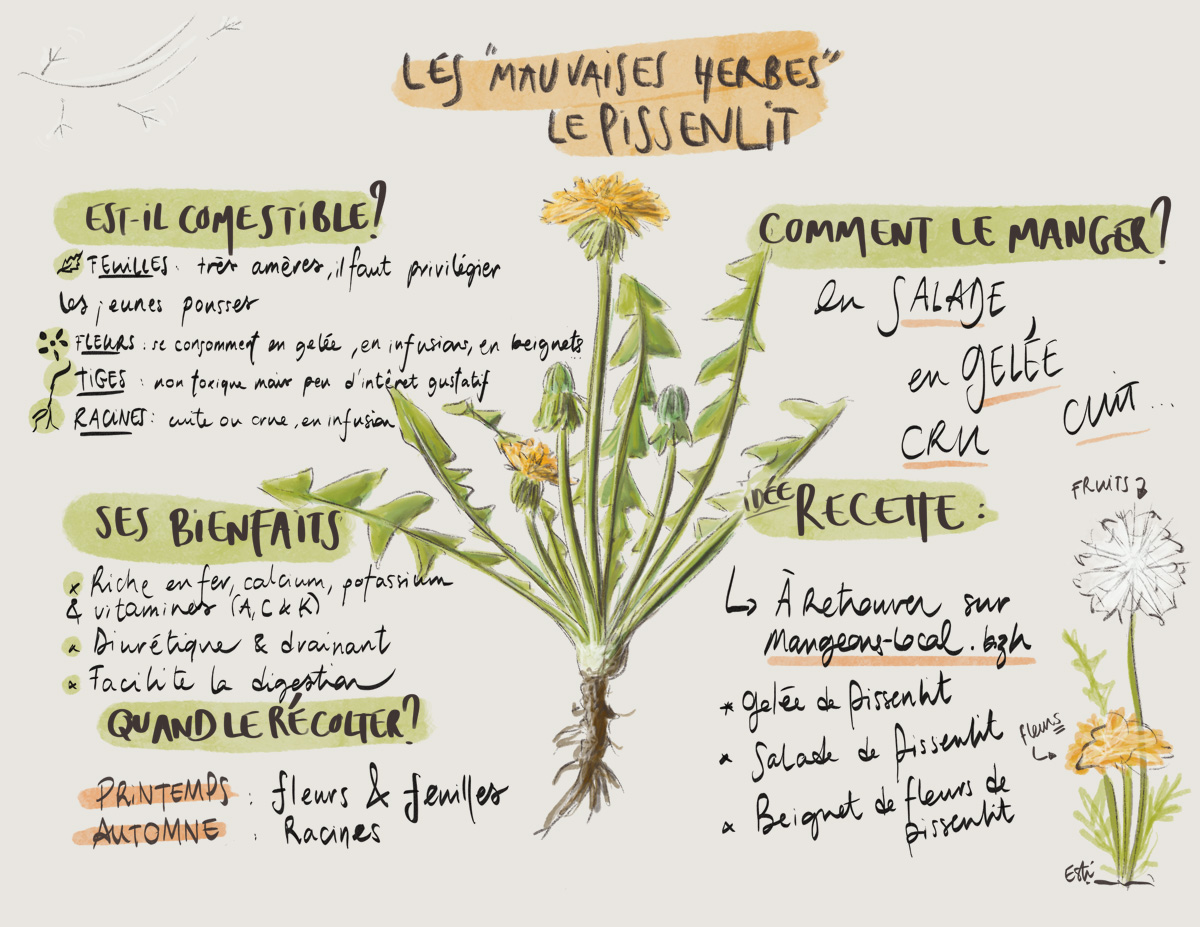 LES "MAUVAISES HERBES"
LE PISSENLIT
EST-IL COMESTIBLE?
FEUILLES : très amères, il faut privilégier
les jeunes pousses
FLEURS : se consomment en gelée, en infusions, en beignets
TIGES : non toxique mais peu d'intêret gustatif
RACINES : cuite ou crue, en infusion
SES BIENFAITS
x Riche en fer, calcium, potassium
& vitamines (A, C & K)
x Diurétique & drainant
x Facilite la digestion
QUAND LE RÉCOLTER?
PRINTEMPS : fleurs & feuilles
AUTOMNE : Racines
COMMENT LE MANGER?
en SALADE
en GELÉE
CRU
CUIT...
IDÉE RECETTE :
À Retrouver sur
Mangeons-Local.bzh
* Gelée de pissenlit
x Salade de pissenlit
x Beignet de fleurs de
pissenlit
FRUITS
fleurs
Esti